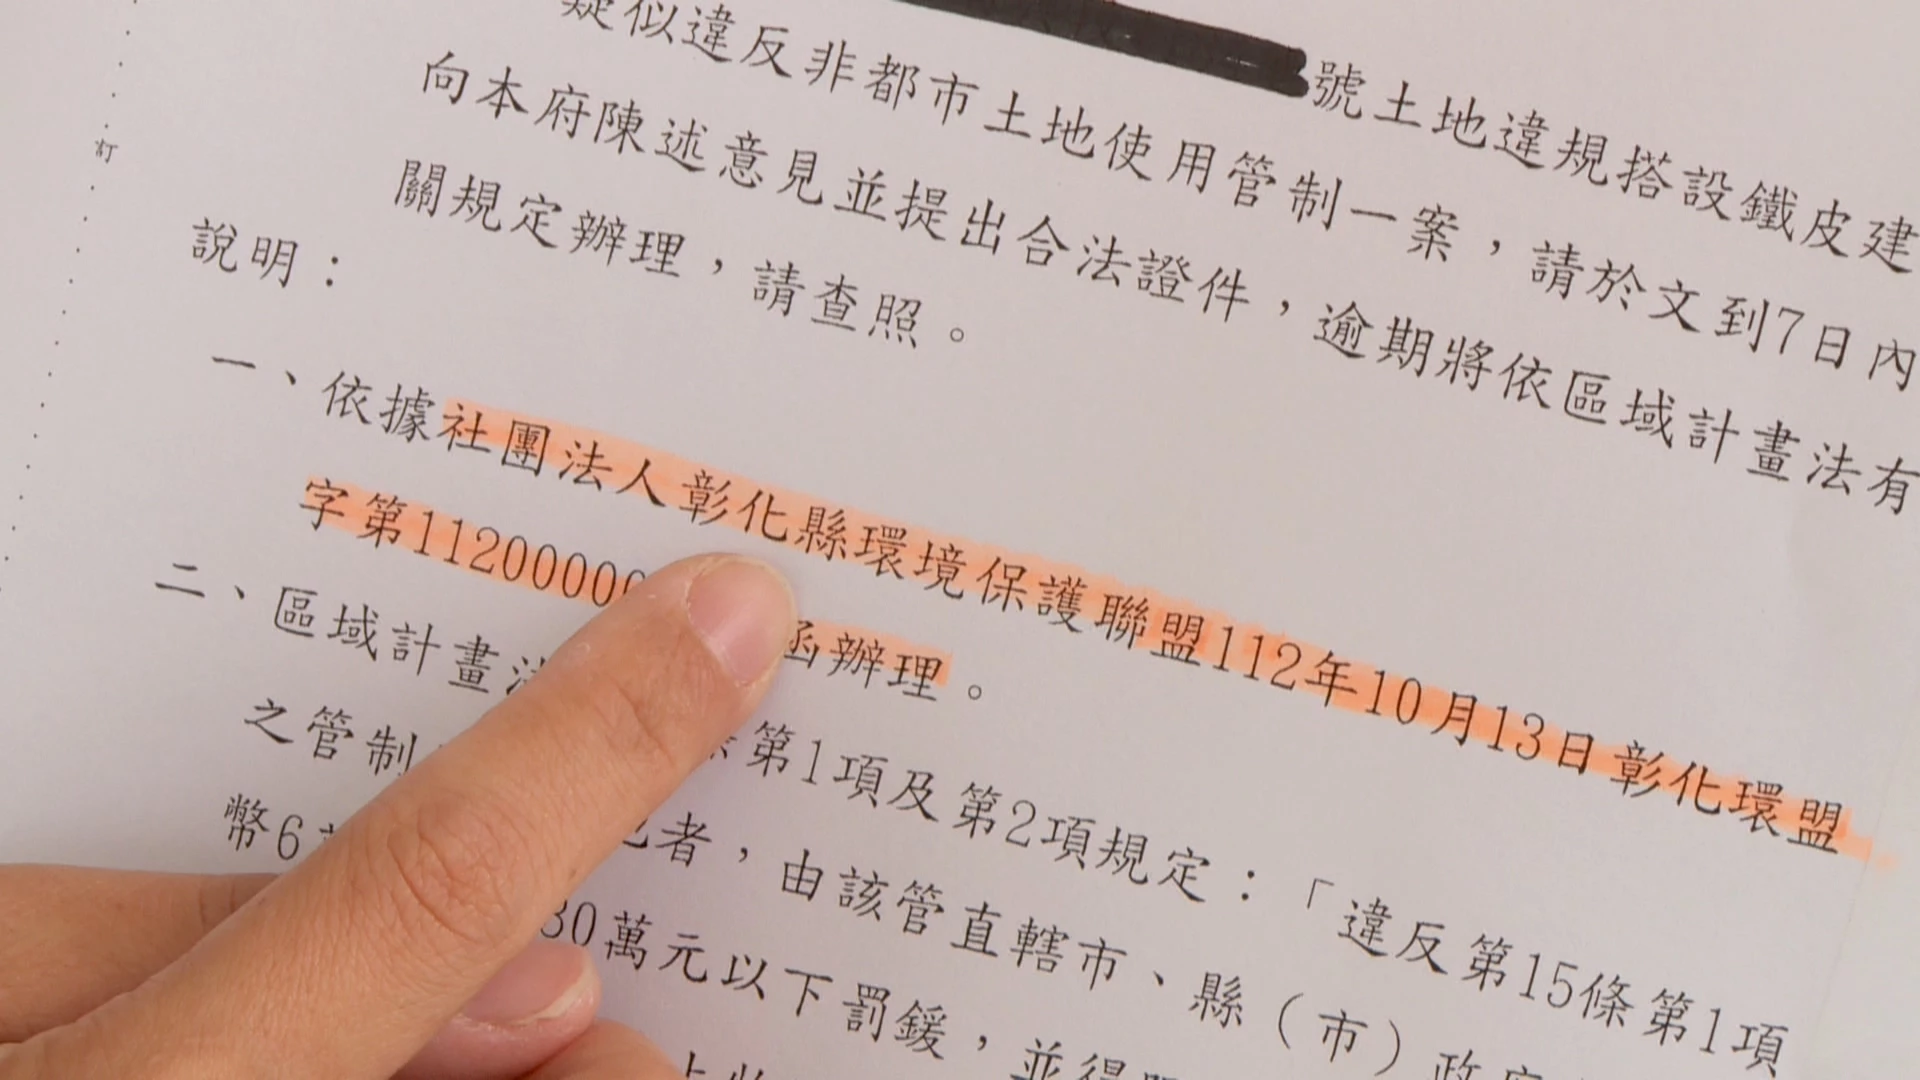 號土地違規搭設鐵皮建
疑似違反非都市土地使用管制一案，請於文到7日內
向本府陳述意見並提出合法證件，逾期將依區域計畫法有
關規定辦理，請查照。
訂
說明：
一、依據社團法人彰化縣環境保護聯盟112年10月13日彰化環盟
字第1120000 函辦理。
二、區域計畫 第1項及第2項規定：「違反第15條第1項
之管制 者，由該管直轄市、縣（市）政府
幣6 30萬元以下罰鍰，並得